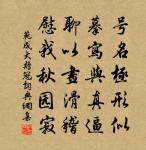 号名極形似
摹寫與真逼
聊以畫滑稽
慰我秋园寂
范成大冠詞典網集